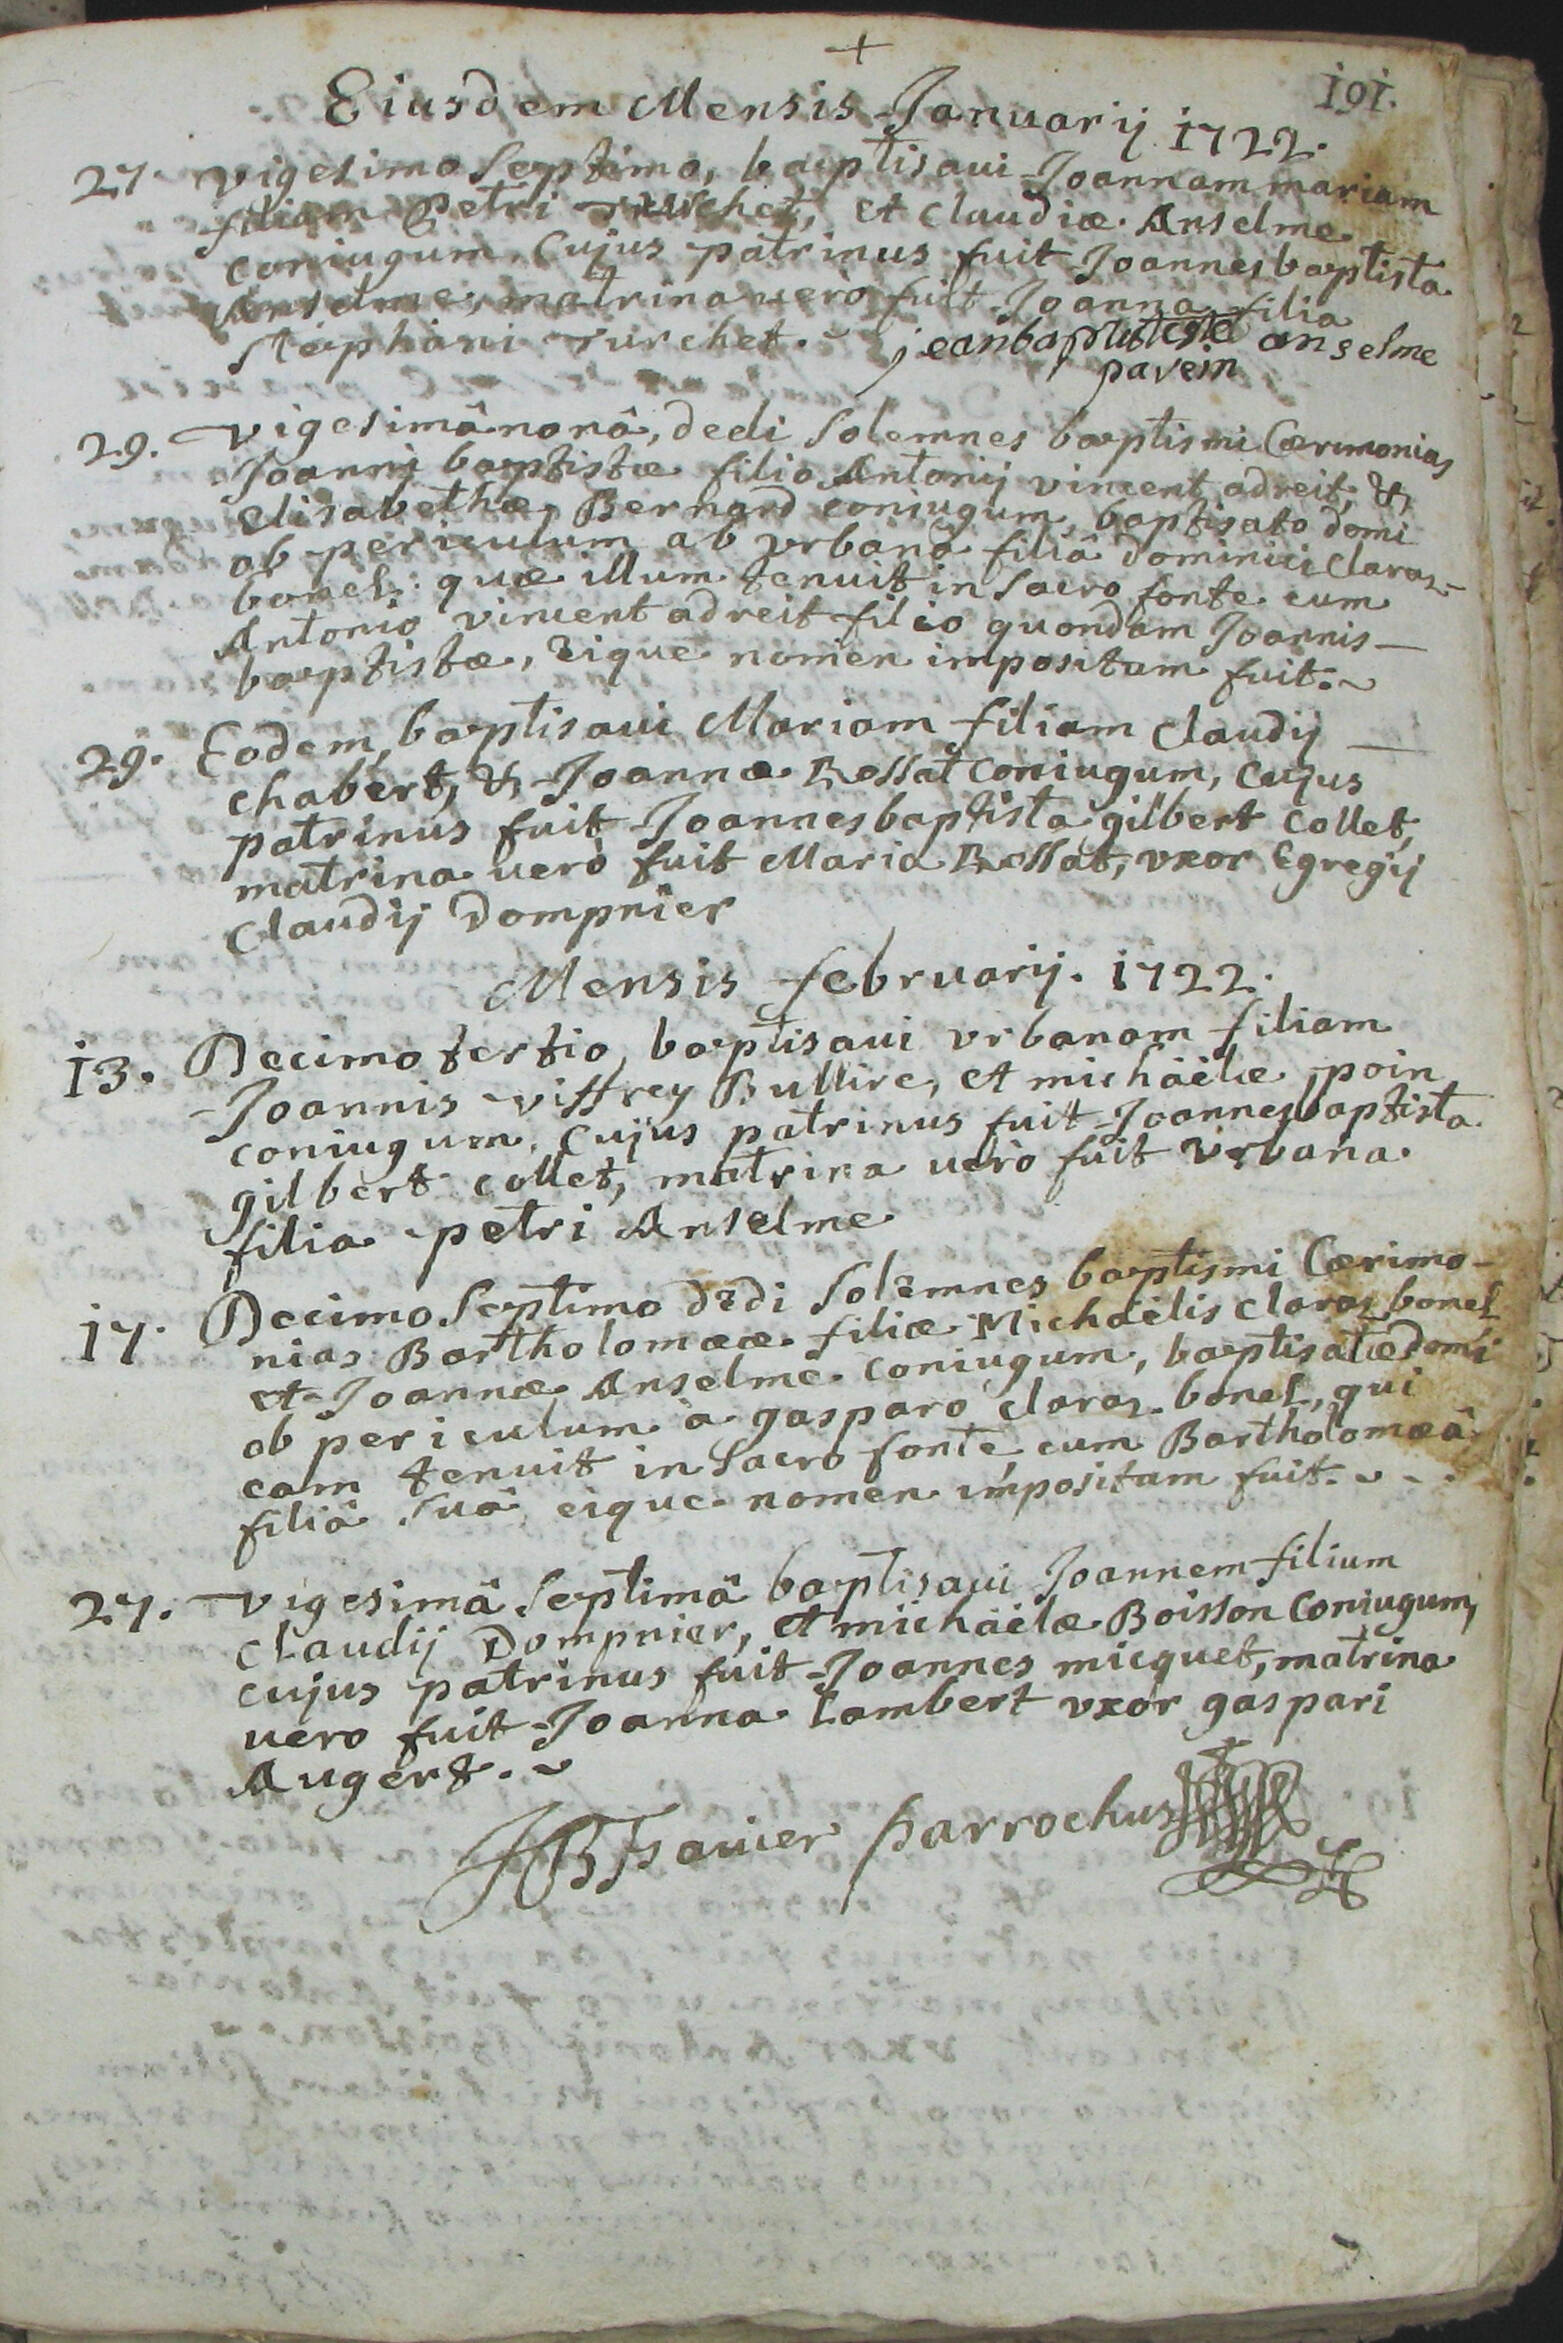 +
191.
Eiusdem Mensis Januarij 1722.
27. vigesimo septimo, baptisaui Joannam mariam
filiam Petri Turchet, et Claudiæ Anselme
coniugum, cujus patrinus fuit Joannes baptista
Anselme, matrina uero fuit Joanna filia
Stephani Turchet. jean baptiste anselme
pavein
29. vigesimâ nonâ, dedi Solemnes baptismi Cærimonias
Joanni baptistæ filio Antonij vincent adreit, &
Elisabethæ Bernard coniugum, baptisato domi
ob periculum ab vrbanâ filiâ dominici claraz-
bonel: quæ illum tenuit in Sacro fonte cum
Antonio vincent adreit filio quondam Joannis
baptistæ, Eique nomen impositum fuit.
29. Eodem, baptisaui Mariam filiam Claudij
chabert, & Joannæ Rossat coniugum, cujus
patrinus fuit Joannes baptista gilbert collet,
matrina uerò fuit Maria Rossat, vxor Egregij
Claudij Dompnier
Mensis februarij. 1722.
13. Decimo tertio, baptisaui vrbanam filiam
Joannis viffrey Bullire, et michäelæ poin
coniugum, Cujus patrinus fuit Joannes baptista
gilbert collet, matrina uerò fuit vrbana
filia petri Anselme
17. Decimo Septimo dedi Solemnes baptismi Cærimo-
nias Bartholomææ filiæ Michaëlis claraz bonel
et Joannæ Anselme coniugum, baptisatæ domi
ob periculum a gasparo claraz bonel, qui
eam tenuit in Sacro fonte cum Bartholomæâ
filiâ Suâ eique nomen impositum fuit.
27. vigesimâ Septimâ baptisaui Joannem filium
Claudij Dompnier, et michäelæ Boisson Coniugum,
cujus patrinus fuit Joannes micquet, matrina
uero fuit Joanna Lambert vxor gaspari
Augert.
parrochus